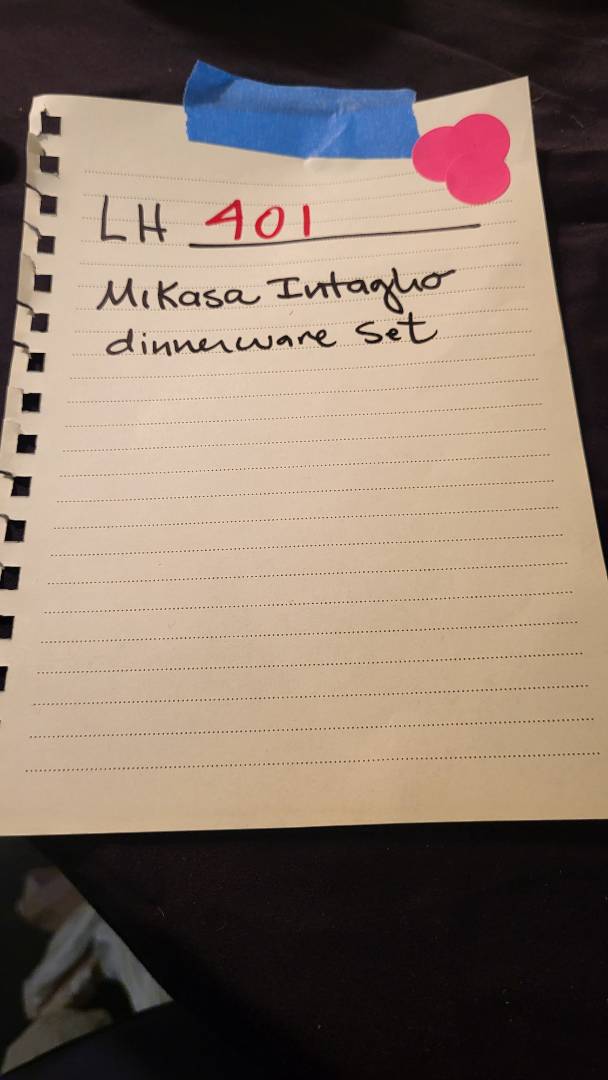 LH 401
Mikasa Intaglio
dinnerware Set